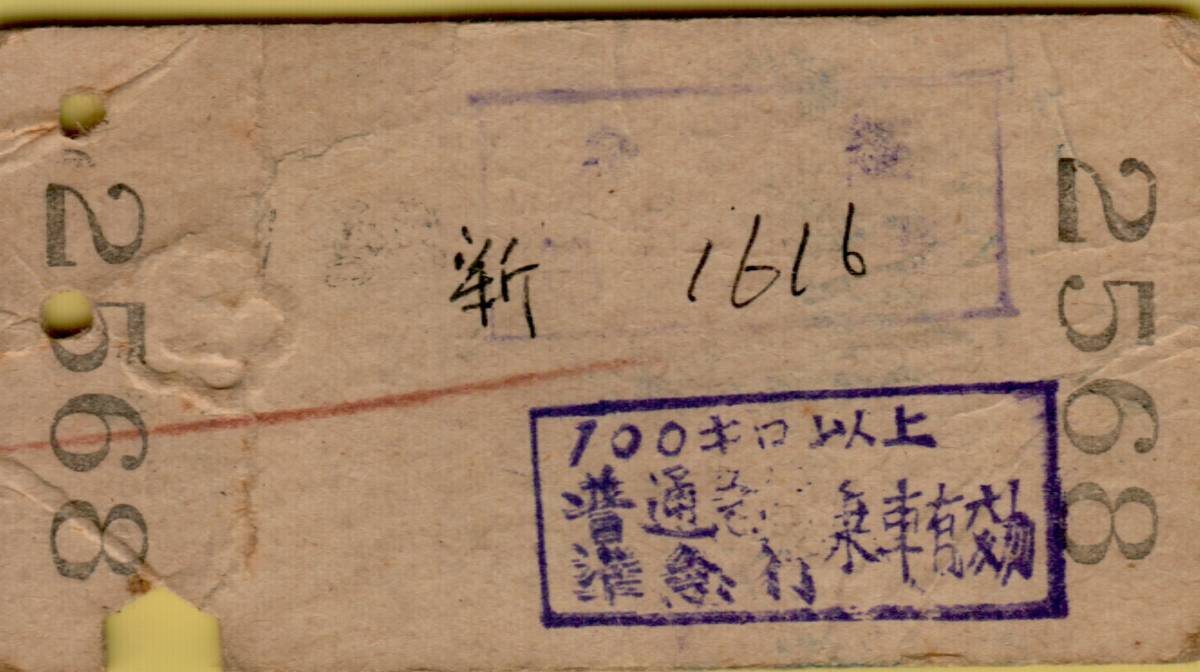 2568
新 1616
2568
100キロ以上
普通急 乗車有効
準急行